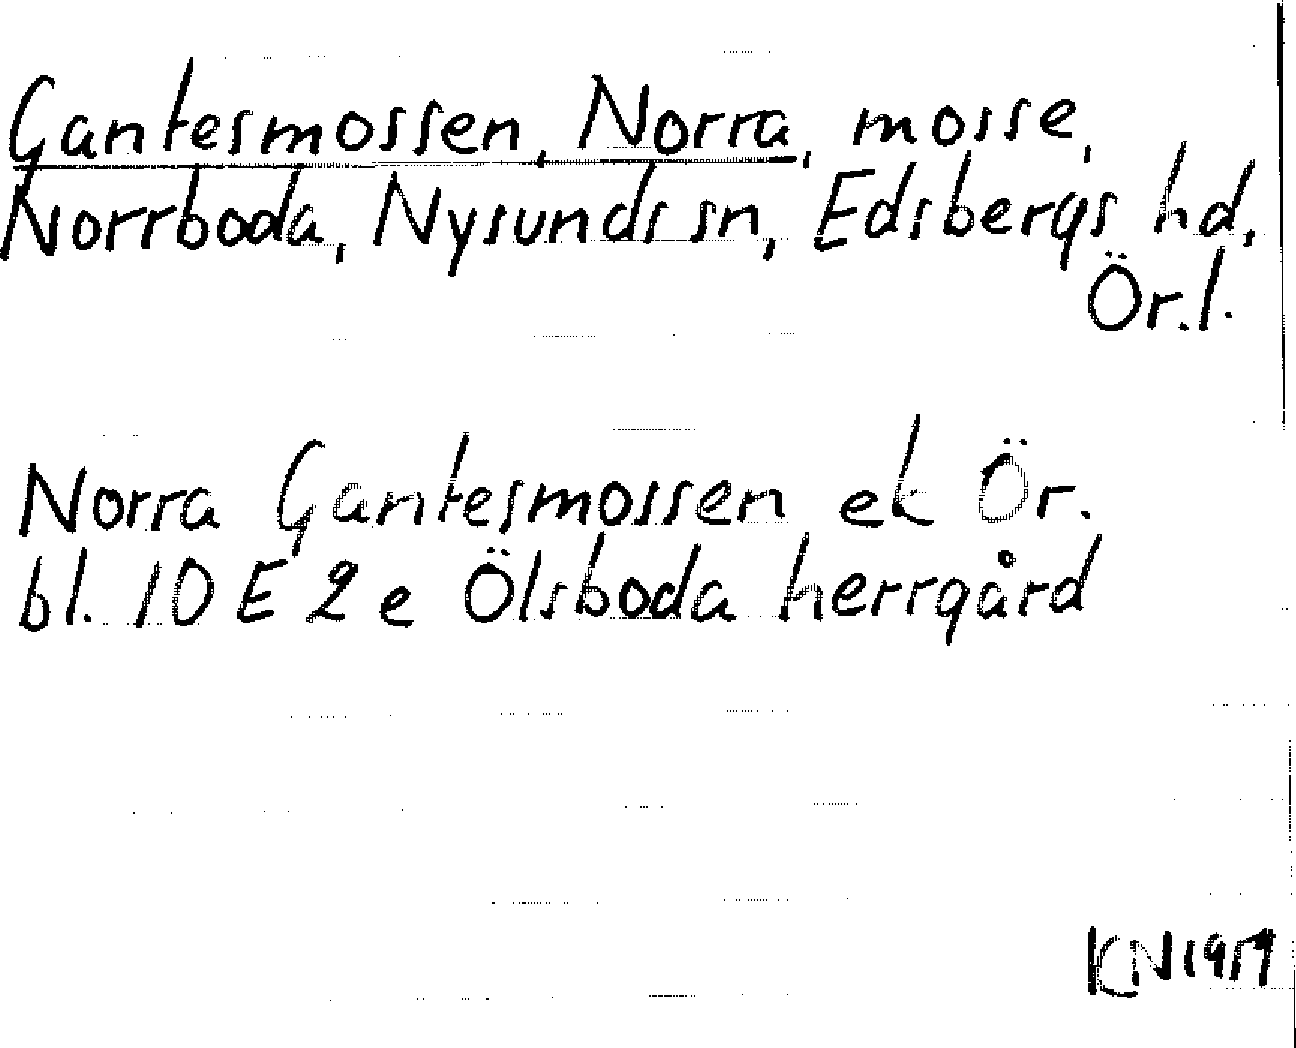 Gantesmossen, Norra, mosse,
Norrboda, Nysunds sn, Edsbergs hd,
Ör.l.
Norra Gantesmossen ek Ör.
bl. 10 E 2 e Ölsboda herrgård
KN 1959